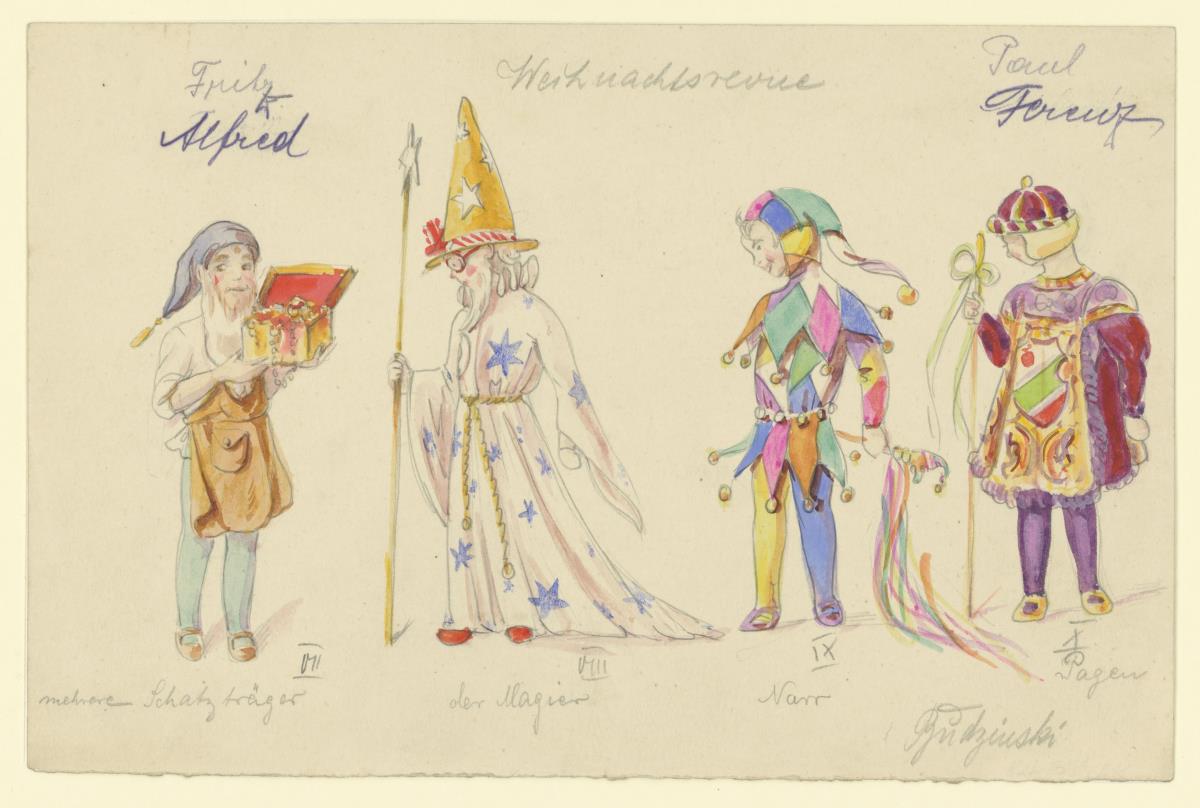 Fritz
Alfred
Weihnachtsrevue
Paul
Ferenz
VII
mehrere Schatzträger
VIII
der Magier
IX
Narr
X
Pagen
Budzinski